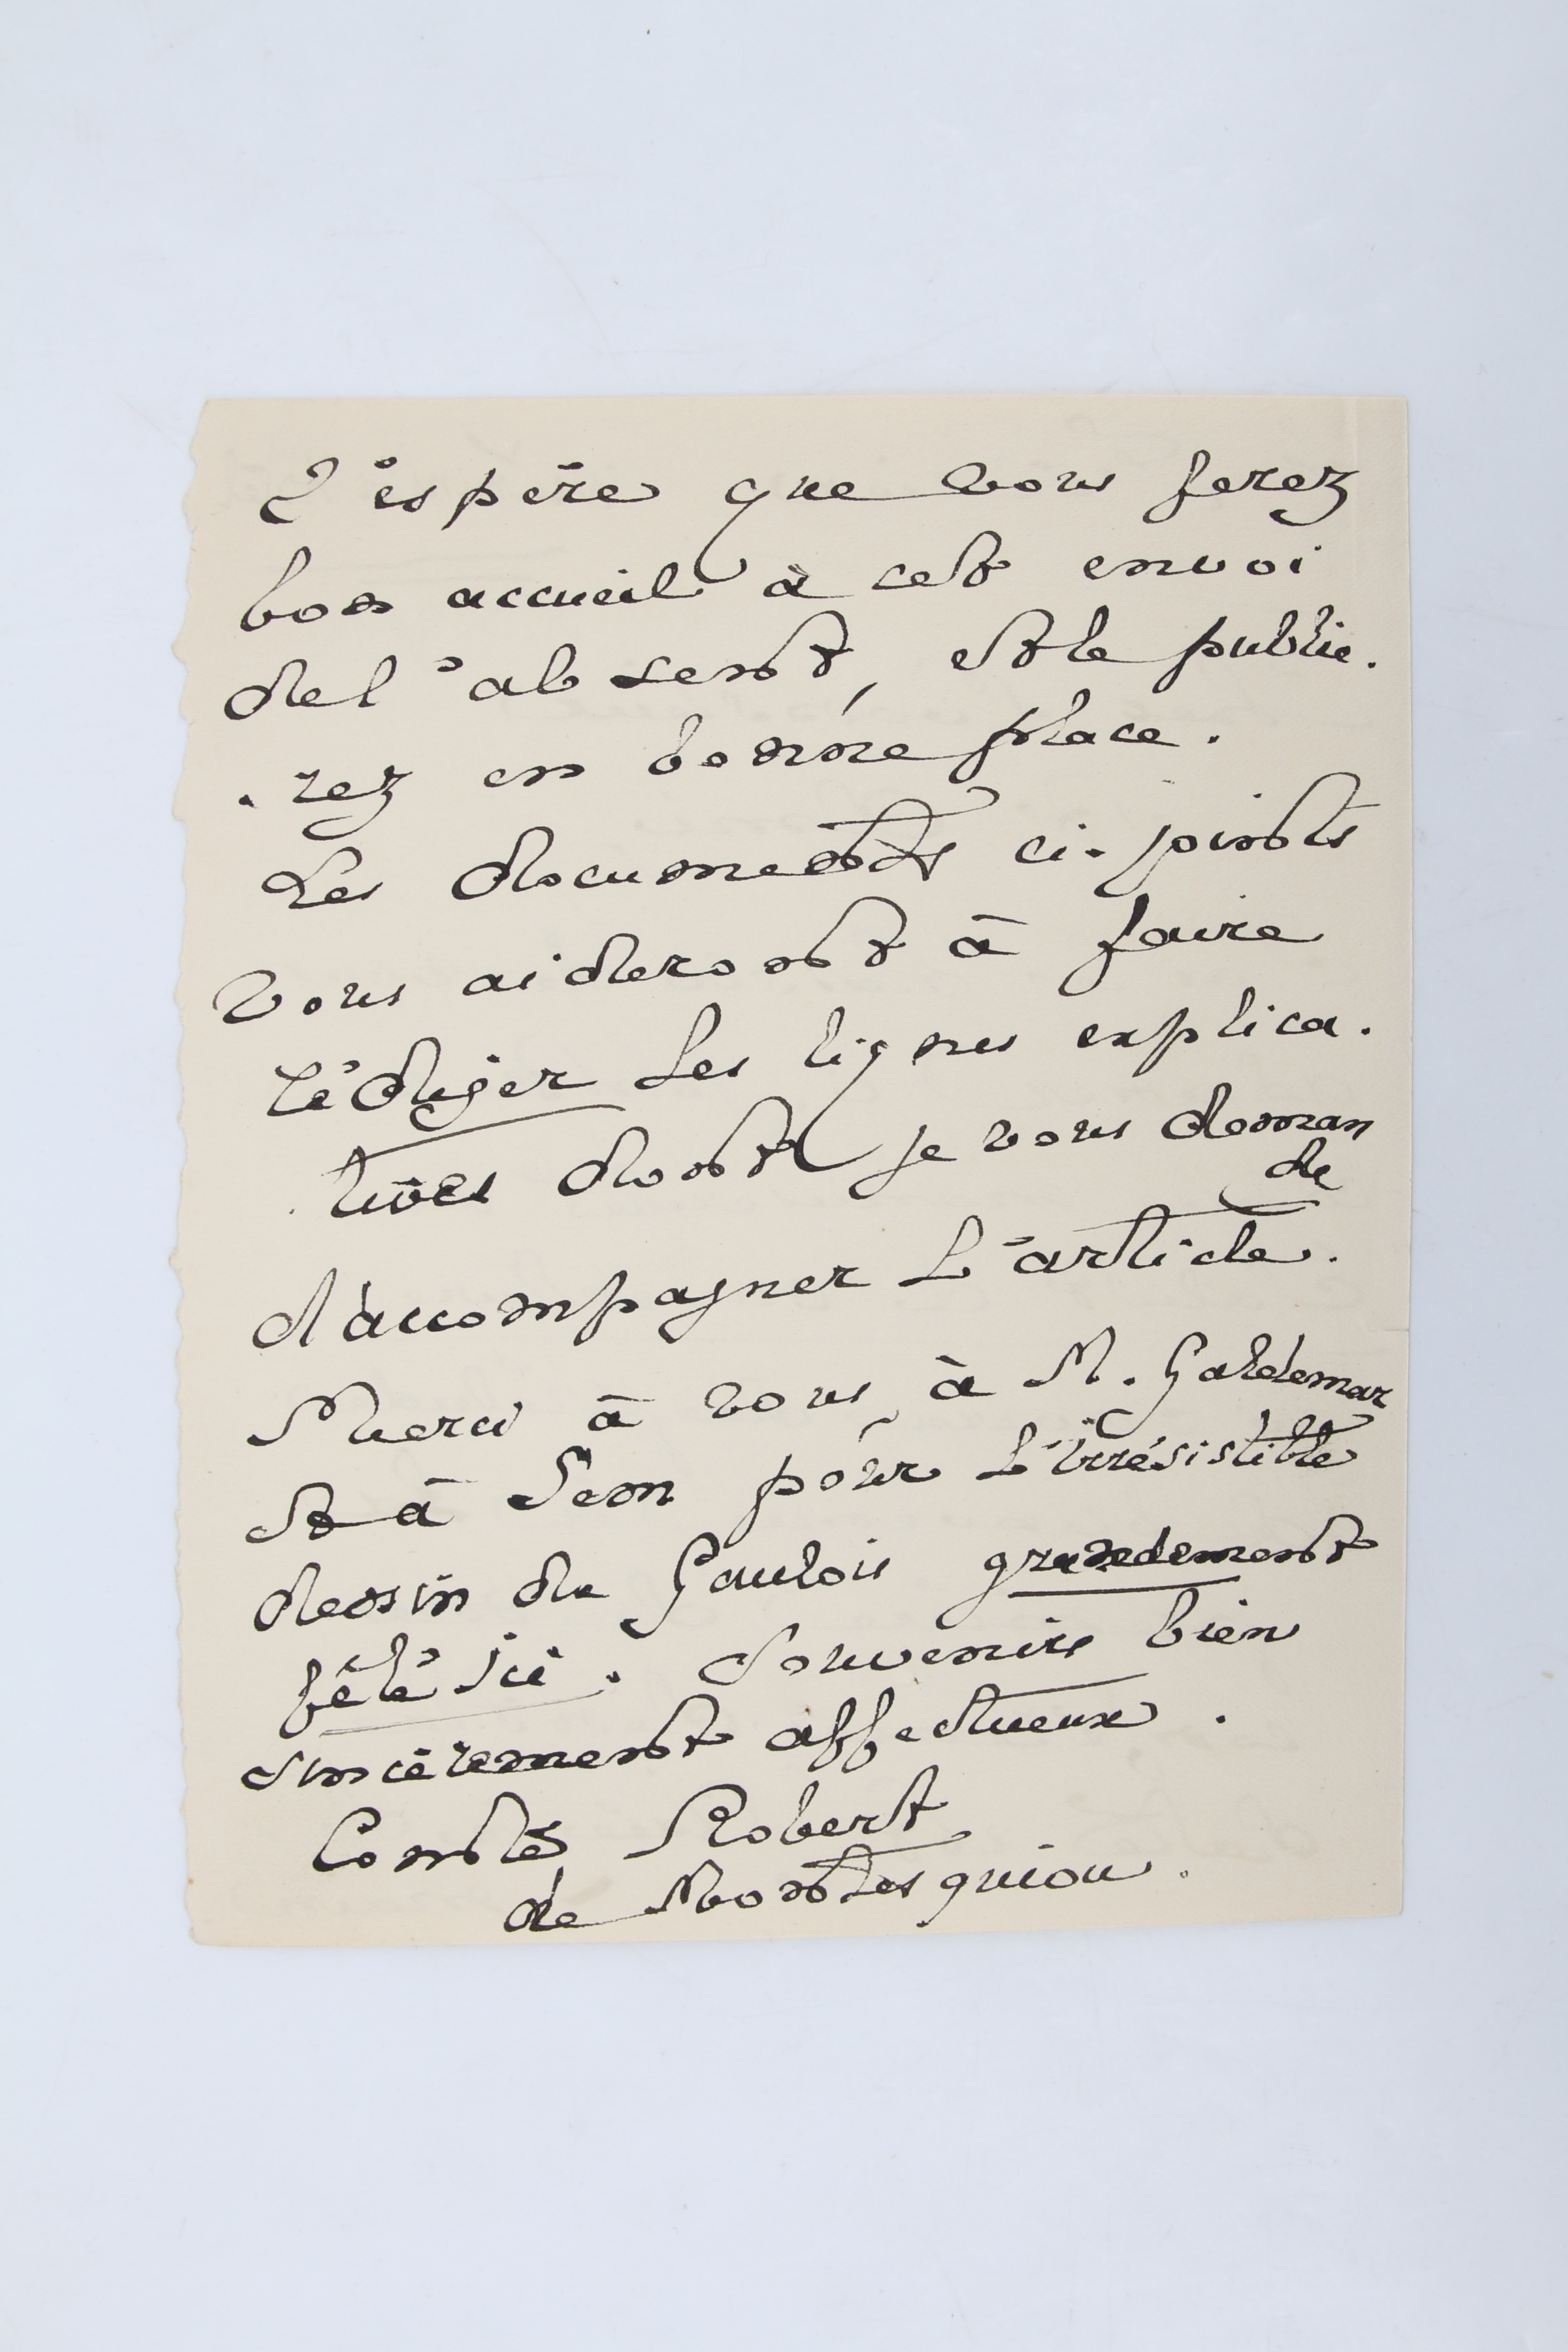 J'espère que vous ferez
bon accueil à cet envoi
de l'absent, et le publie.
. rez en bonne place.
Les documents ci-joints
vous aideront à faire
rédiger les lignes explica.
. tives dont je vous deman
de
d'accompagner l'article.
Merci à vous, à M. Galdemar
et à Sem pour l'irrésistible
dessin du Gaulois grandement
fêté ici. Souvenirs bien
sincèrement affectueux.
Comte Robert
de Montesquiou.